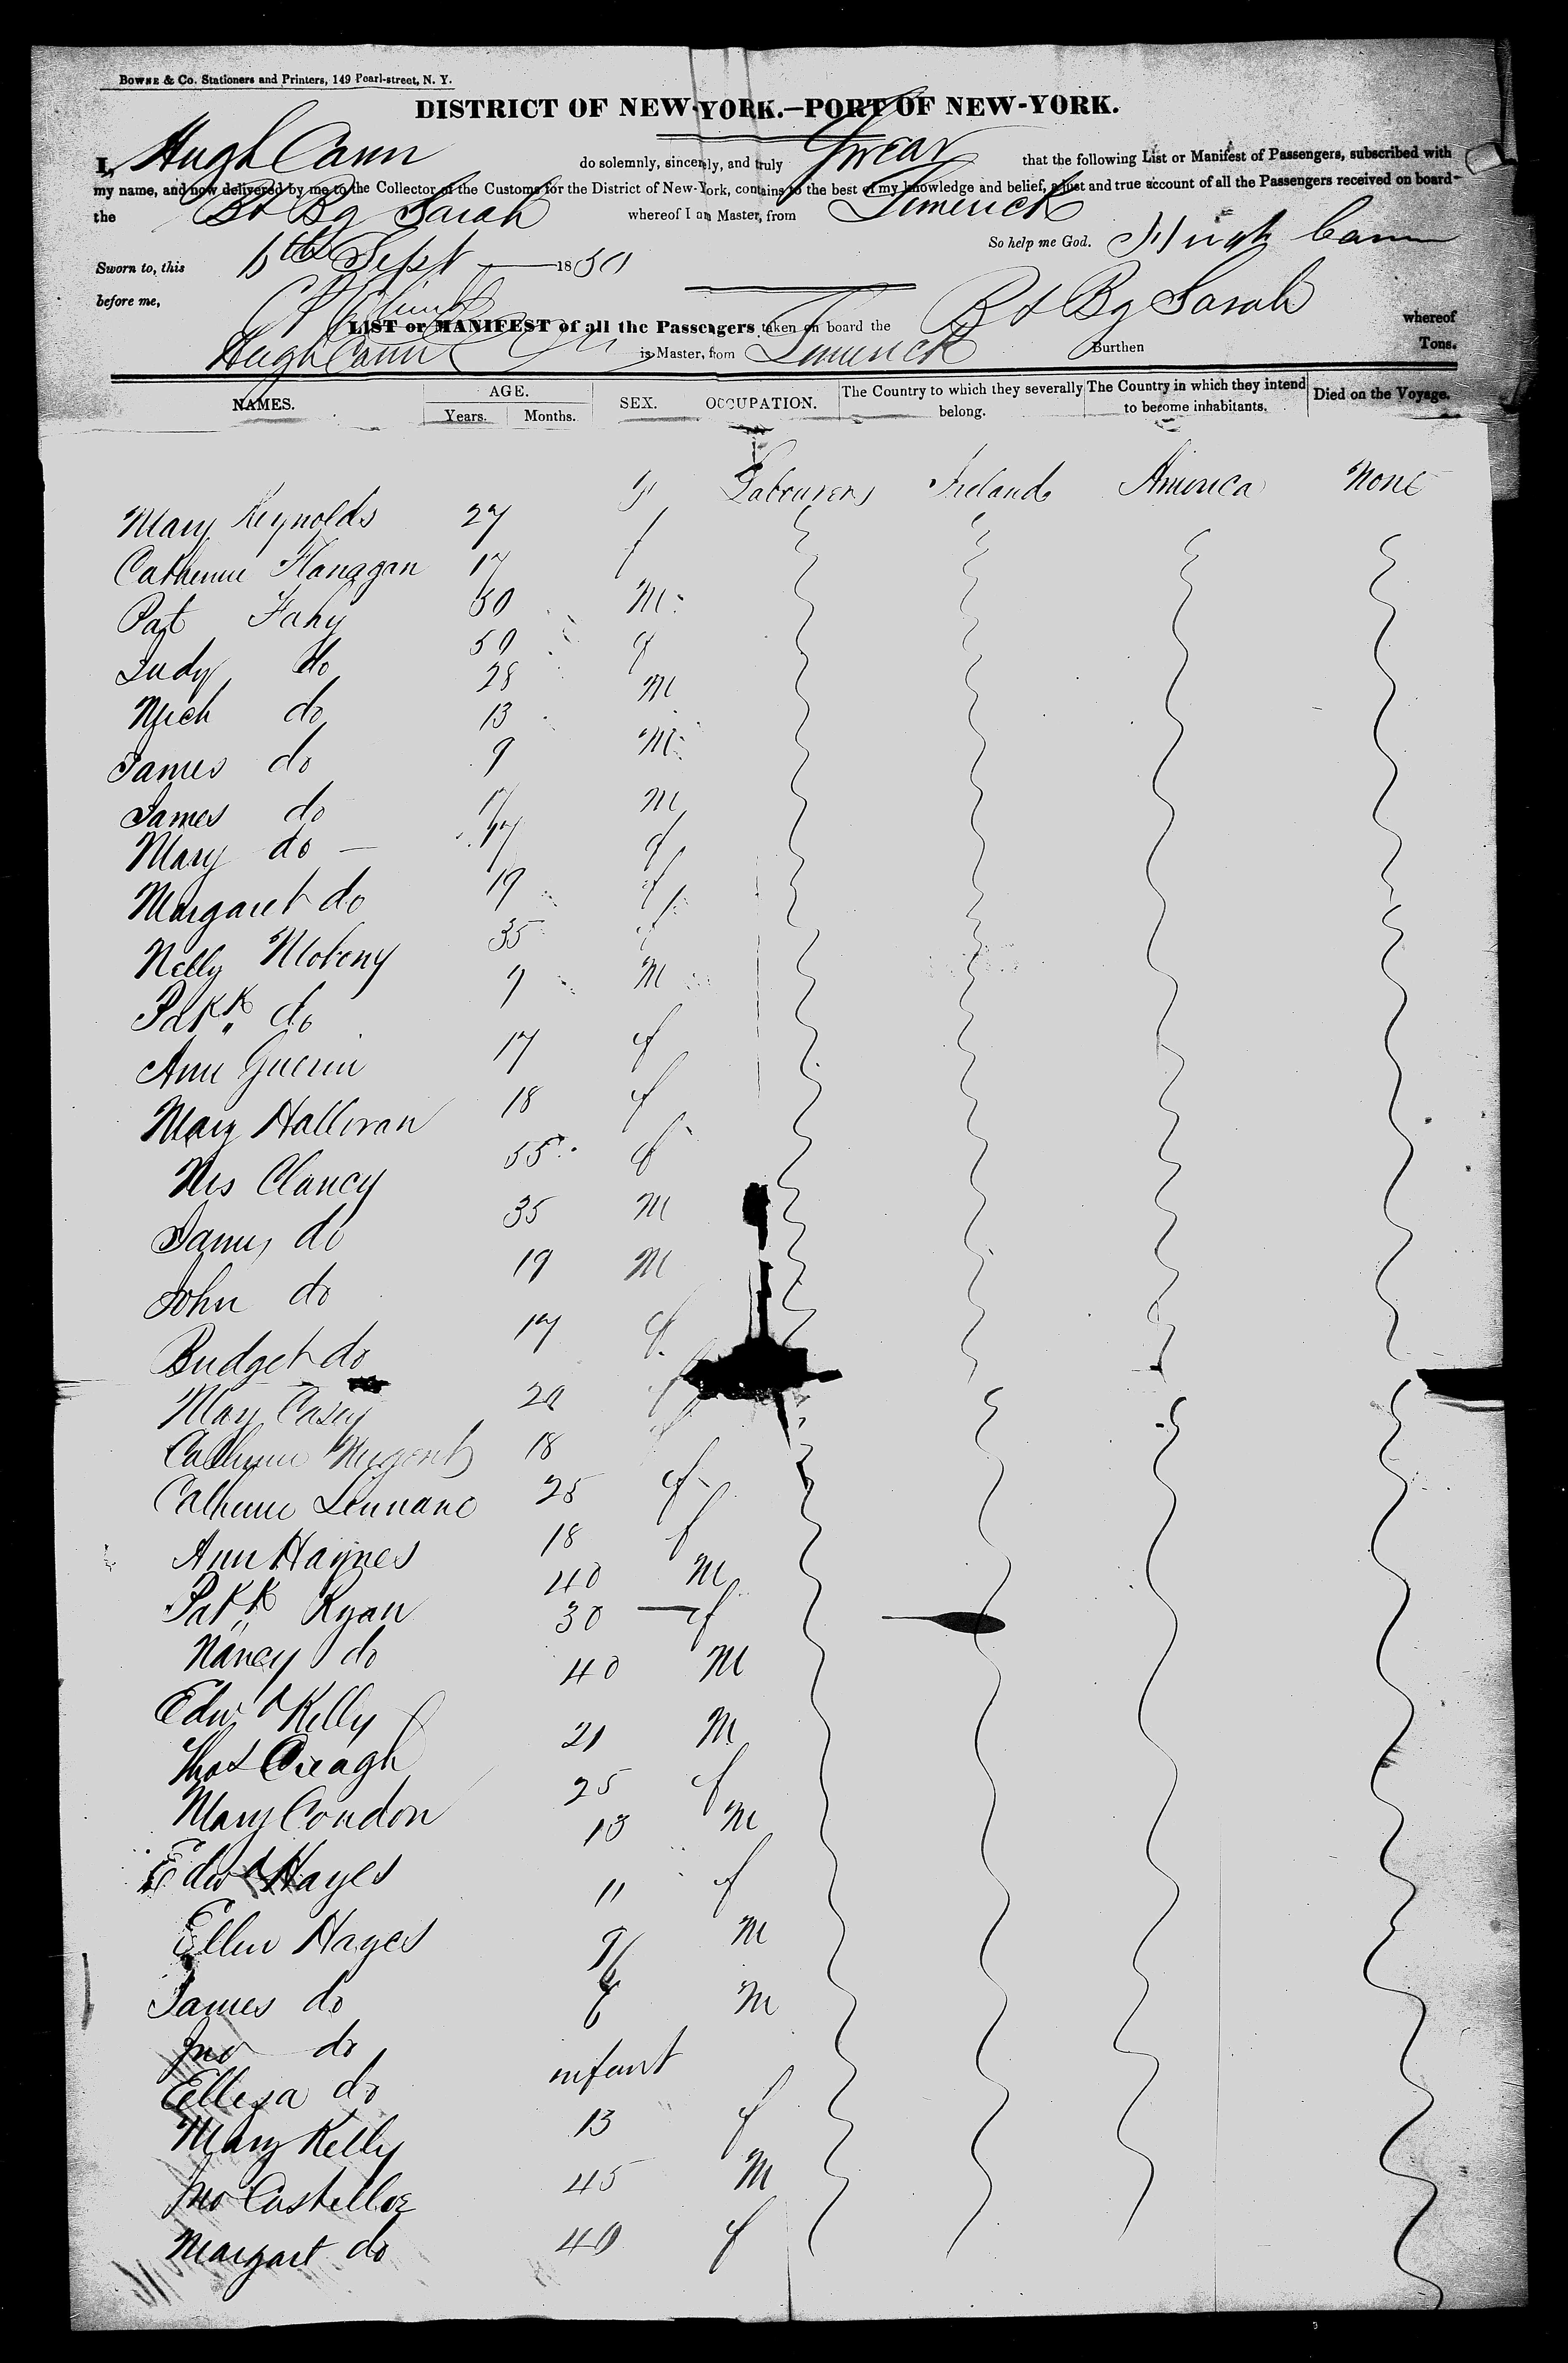 BOWNE & Co. Stationers and Printers, 149 Pearl-street, N. Y.
DISTRICT OF NEW-YORK.—PORT OF NEW-YORK.
I, Hugh Cann do solemnly, sincerely, and truly Swear that the following List or Manifest of Passengers, subscribed with
my name, and now delivered by me to the Collector of the Customs for the District of New-York, contains to the best of my knowledge and belief, a just and true account of all the Passengers received on board
the Bt Bg Sarah whereof I am Master, from Limerick
So help me God. Hugh Cann
Sworn to, this 6th Sept 1850
before me,
LIST or MANIFEST of all the Passengers taken on board the Bt Bg Sarah whereof
Hugh Cann is Master, from Limerick Burthen Tons.
NAMES. AGE. Years. Months. SEX. OCCUPATION. The Country to which they severally belong. The Country in which they intend to become inhabitants. Died on the Voyage.
Mary Reynolds 27 f Labourers Ireland America None
Catherine Flanagan 17 f
Pat Fahy 50 M
Judy do 50 f
Mich do 28 M
James do 13 M
James do 9 M
Mary do 17 f
Margaret do 19 f
Nelly 35 f
Patk do 7 M
Ann Guerin 17 f
Mary Halloran 18 f
Mrs Clancy 55 f
James do 35 M
John do 19 M
Bridget do 17 f
May Casey 20 f
Catherine Nugent 18 f
Catherine Lennane 25 f
Ann Haynes 18 f
Patk Ryan 40 M
Nancy do 30 f
Edwd Kelly 40 M
Thos Creagh 21 M
Mary Condon 25 f
Edwd Hayes 13 M
Ellen Hayes 11 f
James do 9 M
Jno do 6 M
Elleza do infant
Mary Kelly 13 f
Jno Costelloe 45 M
Margart do 40 f